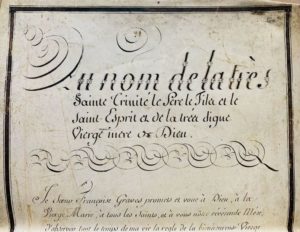 Au nom de la très
Sainte Trinité le Pere le Fils et le
Saint Esprit et de la tres digne
Vierge mere de Dieu.
Je Sœur Françoise Graves promets et voue à Dieu, à la
Vierge Marie, à tous les Saints, et à vous nôtre reverente Mere,
d'observer tout le temps de ma vie la regle de la bienheureuse Vierge